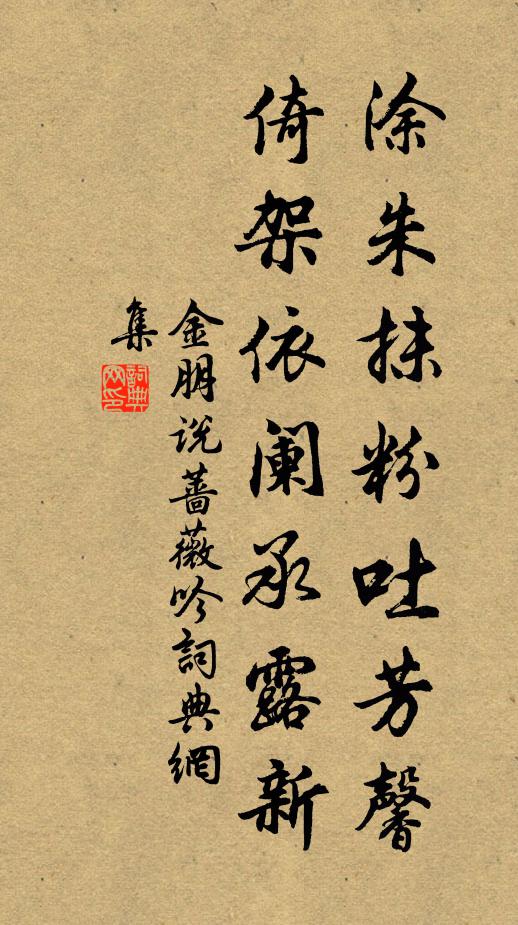 涂朱抹粉吐芳馨
倚架依阑承露新
金朋说蔷薇吟詞典網
集
詞典网印